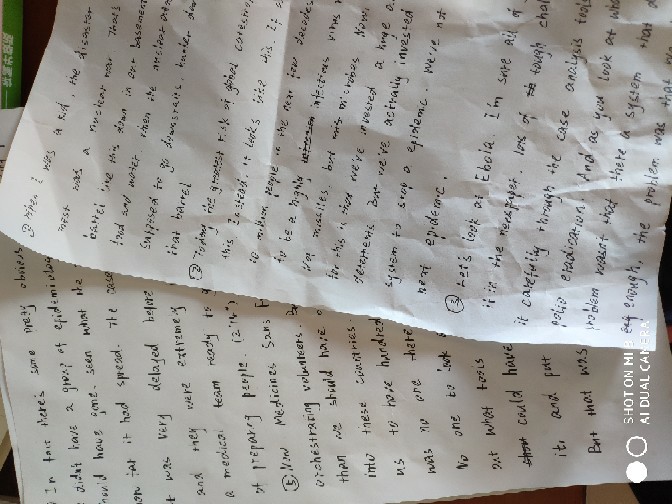 ① When I was a kid, the disaster
most was a nuclear war. That's
barrel like this down in our basement
food and water. When the nuclear
supposed to go downstairs, hunker down
that barrel.
② Today the greatest risk of global
this. Instead, it looks like this. If
10 million people in the next few decades
to be a highly infectious virus
war. missiles, but microbes. Now,
for this is that we've invested a huge
deterrents. But we've actually invested
system to stop a epidemic. We're not
next epidemic.
③ Let's look at Ebola. I'm sure all of
it in the newspaper. lots of tough
it carefully through the case analysis tools
polio eradications. And as you look at what
problem wasn't that there a system that
enough, the problem was that
In fact there's some pretty obvious
didn't have a group of epidemiologists
should have gone, seen what the
how far it had spread. The case
It was very delayed before
and they were extremely
a medical team ready to
of preparing people.
⑤ Now Medicines Sans
orchestrating volunteers.
than we should have
into these countries
us to have handled
was no one there
No one to look
out what tools
could have
it. and put
But that was
SHOT ON MI 8
AI DUAL CAMERA